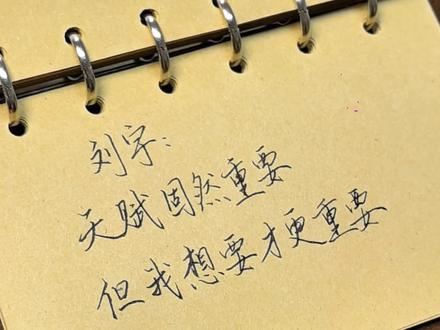 刘宇：
天赋固然重要
但我想要才更重要